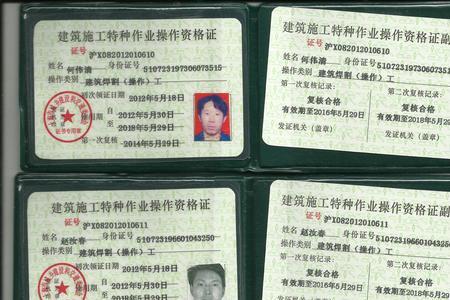 建筑施工特种作业操作资格证
证号 沪X082012010610
姓名 何伟清 身份证号 510723197306073515
操作类别 建筑焊割（操作）工
初次领证日期 2012年5月18日
2012年5月30日
2018年5月29日
第一次复核 2014年5月29日
证书专用章
建筑施工特种作业操作资格证副
证号 沪X082012010610
姓名 何伟清 身份证号 5107231973060
操作类别 建筑焊割（操作）工
第一次复核记录： 第二次复核记录：
复核合格 复核合格
有效期至2016年5月29日 有效期至2018年5月29日
发证机关（盖章） 发证机关（盖章）
建筑施工特种作业操作资格证
证号 沪X082012010611
姓名 赵汝春 身份证号 510723196601043250
操作类别 建筑焊割（操作）工
初次领证日期 2012年5月18日
2012年5月30日
建筑施工特种作业操作资格证副
证号 沪X082012010611
姓名 赵汝春 身份证号 5107231966010432
操作类别 建筑焊割（操作）工
第一次复核记录： 第二次复核记录：
复核合格 复核合格
有效期至2016年5月29日 有效期至2018年5月29日